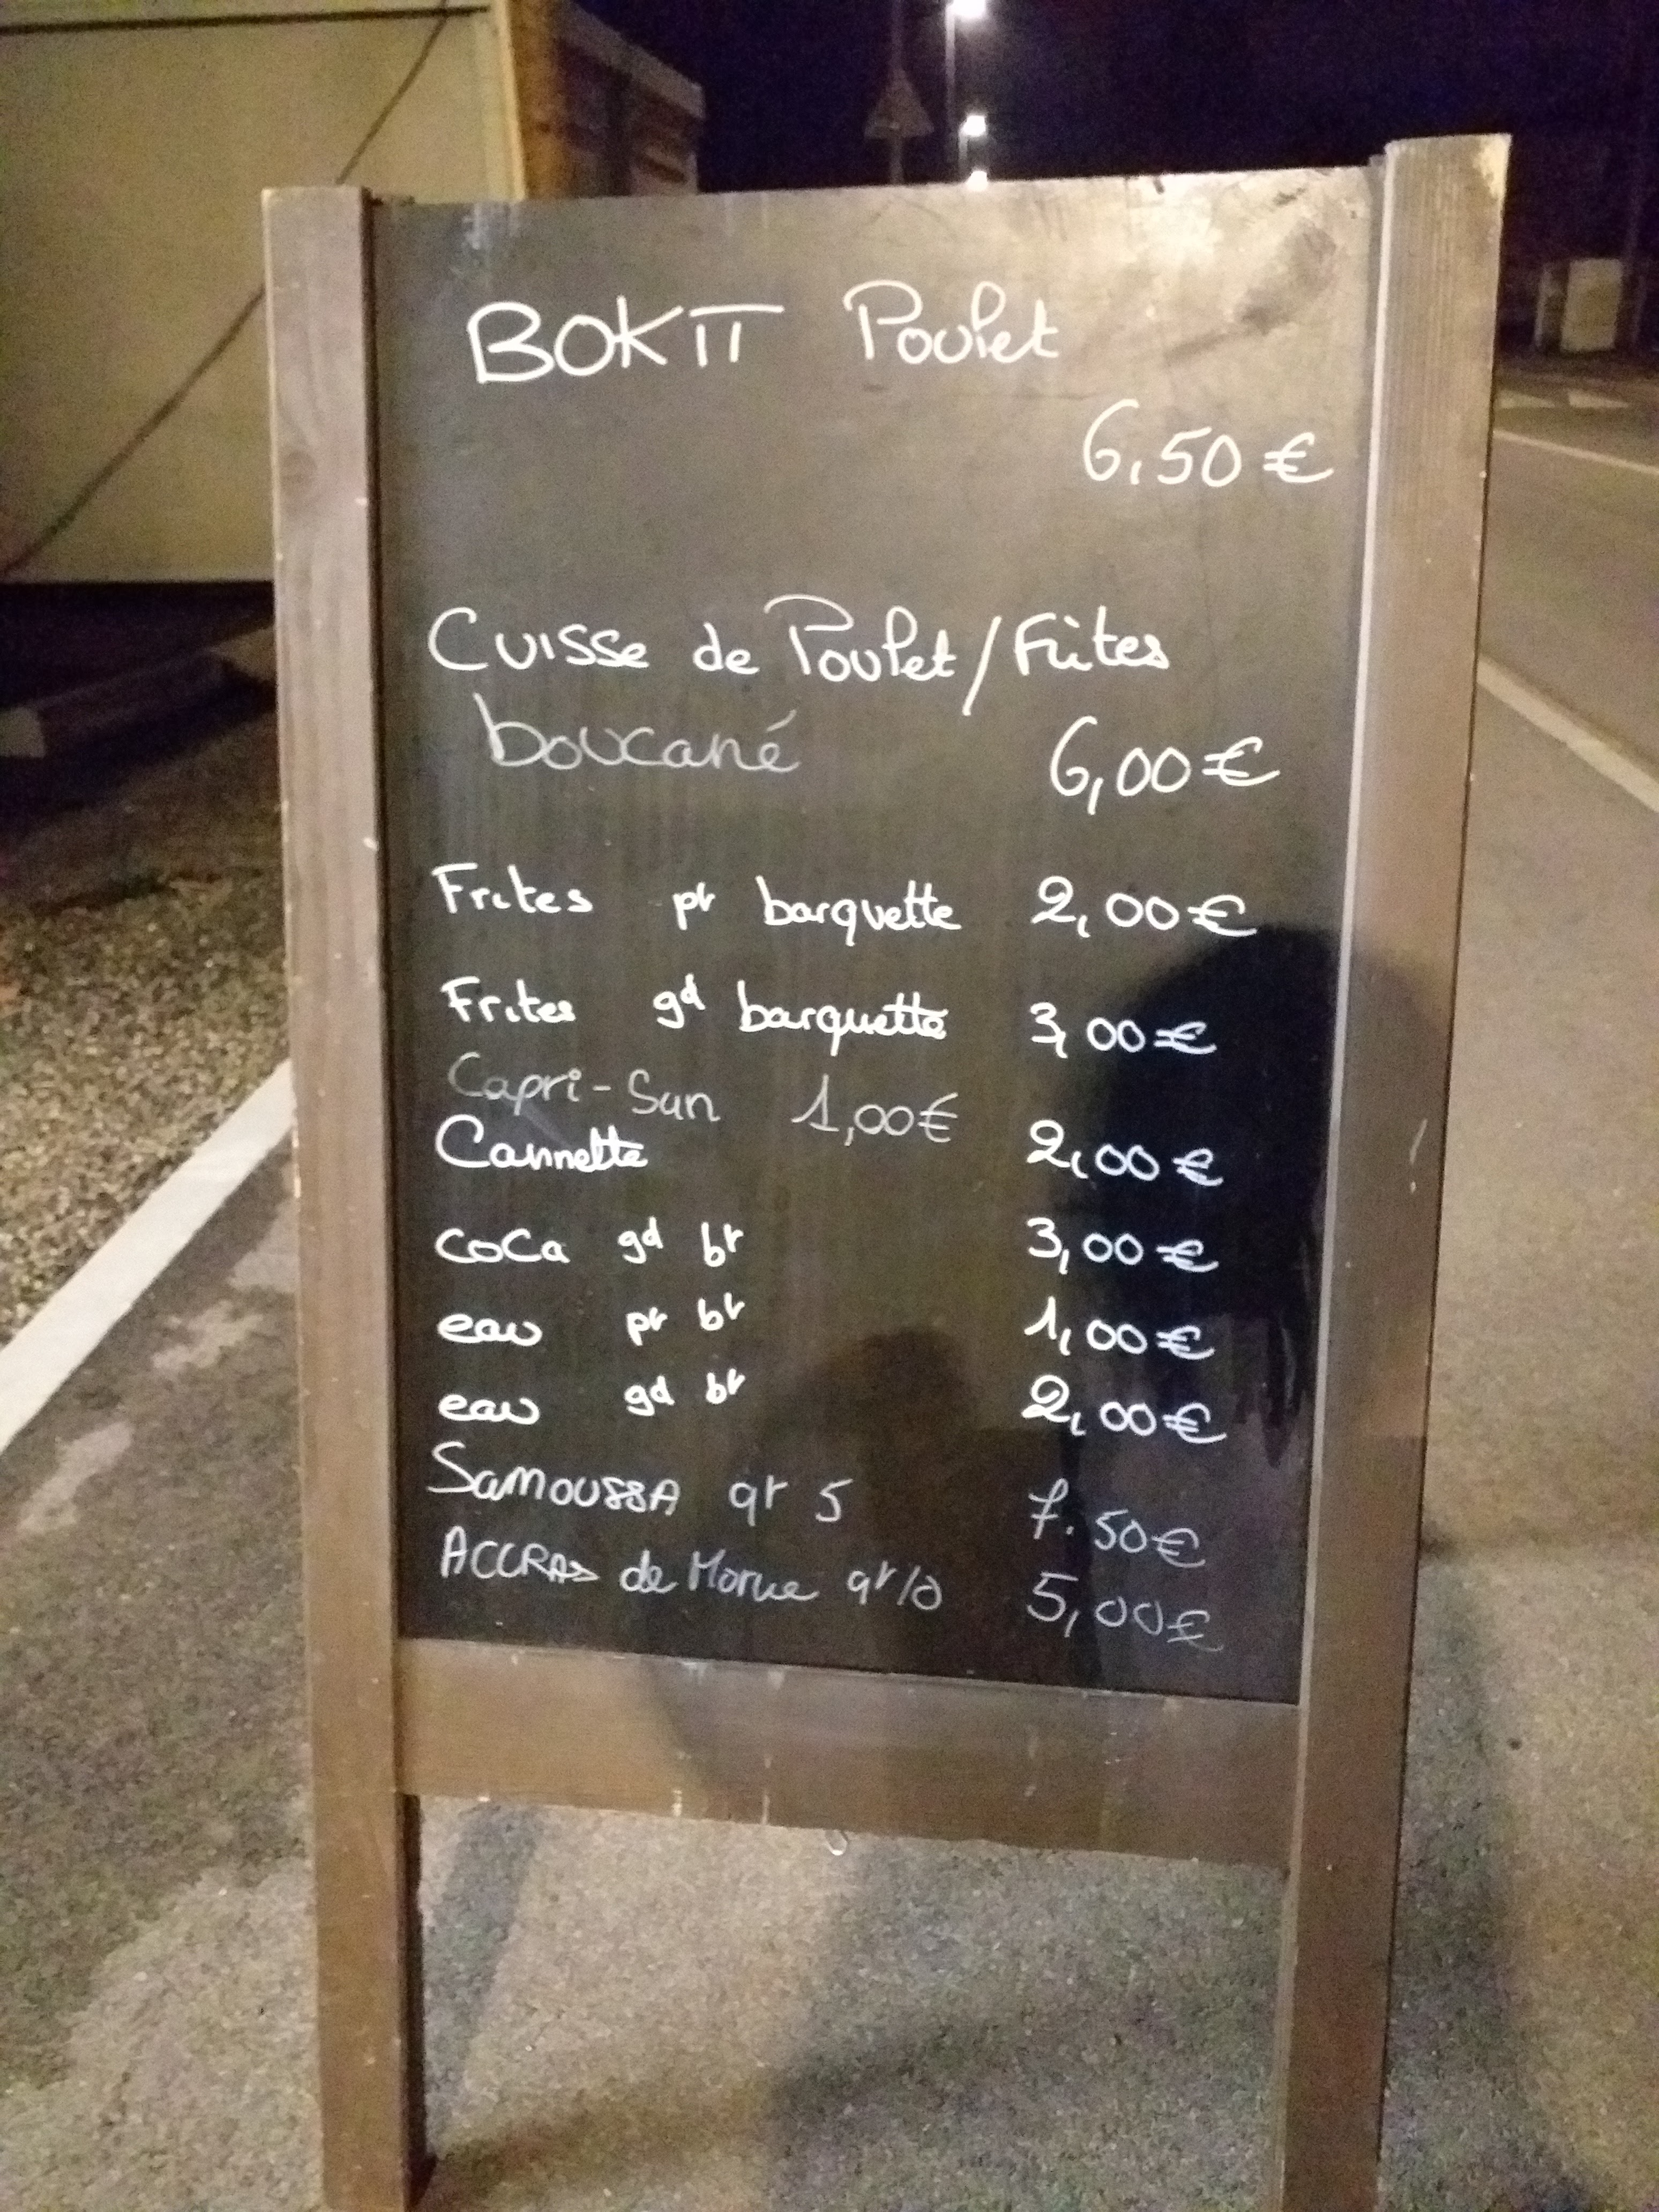 BOKIT Poulet
6,50 €
Cuisse de Poulet/Frites
boucané 6,00 €
Frites pt barquette 2,00 €
Frites gd barquette 3,00 €
Capri-Sun 1,00€
Cannette 2,00 €
coca gd bt 3,00 €
eau pt bt 1,00 €
eau gd bt 2,00 €
SAMOUSSA qt 5 7.50€
ACCRAS de Morue qt 10 5,00€